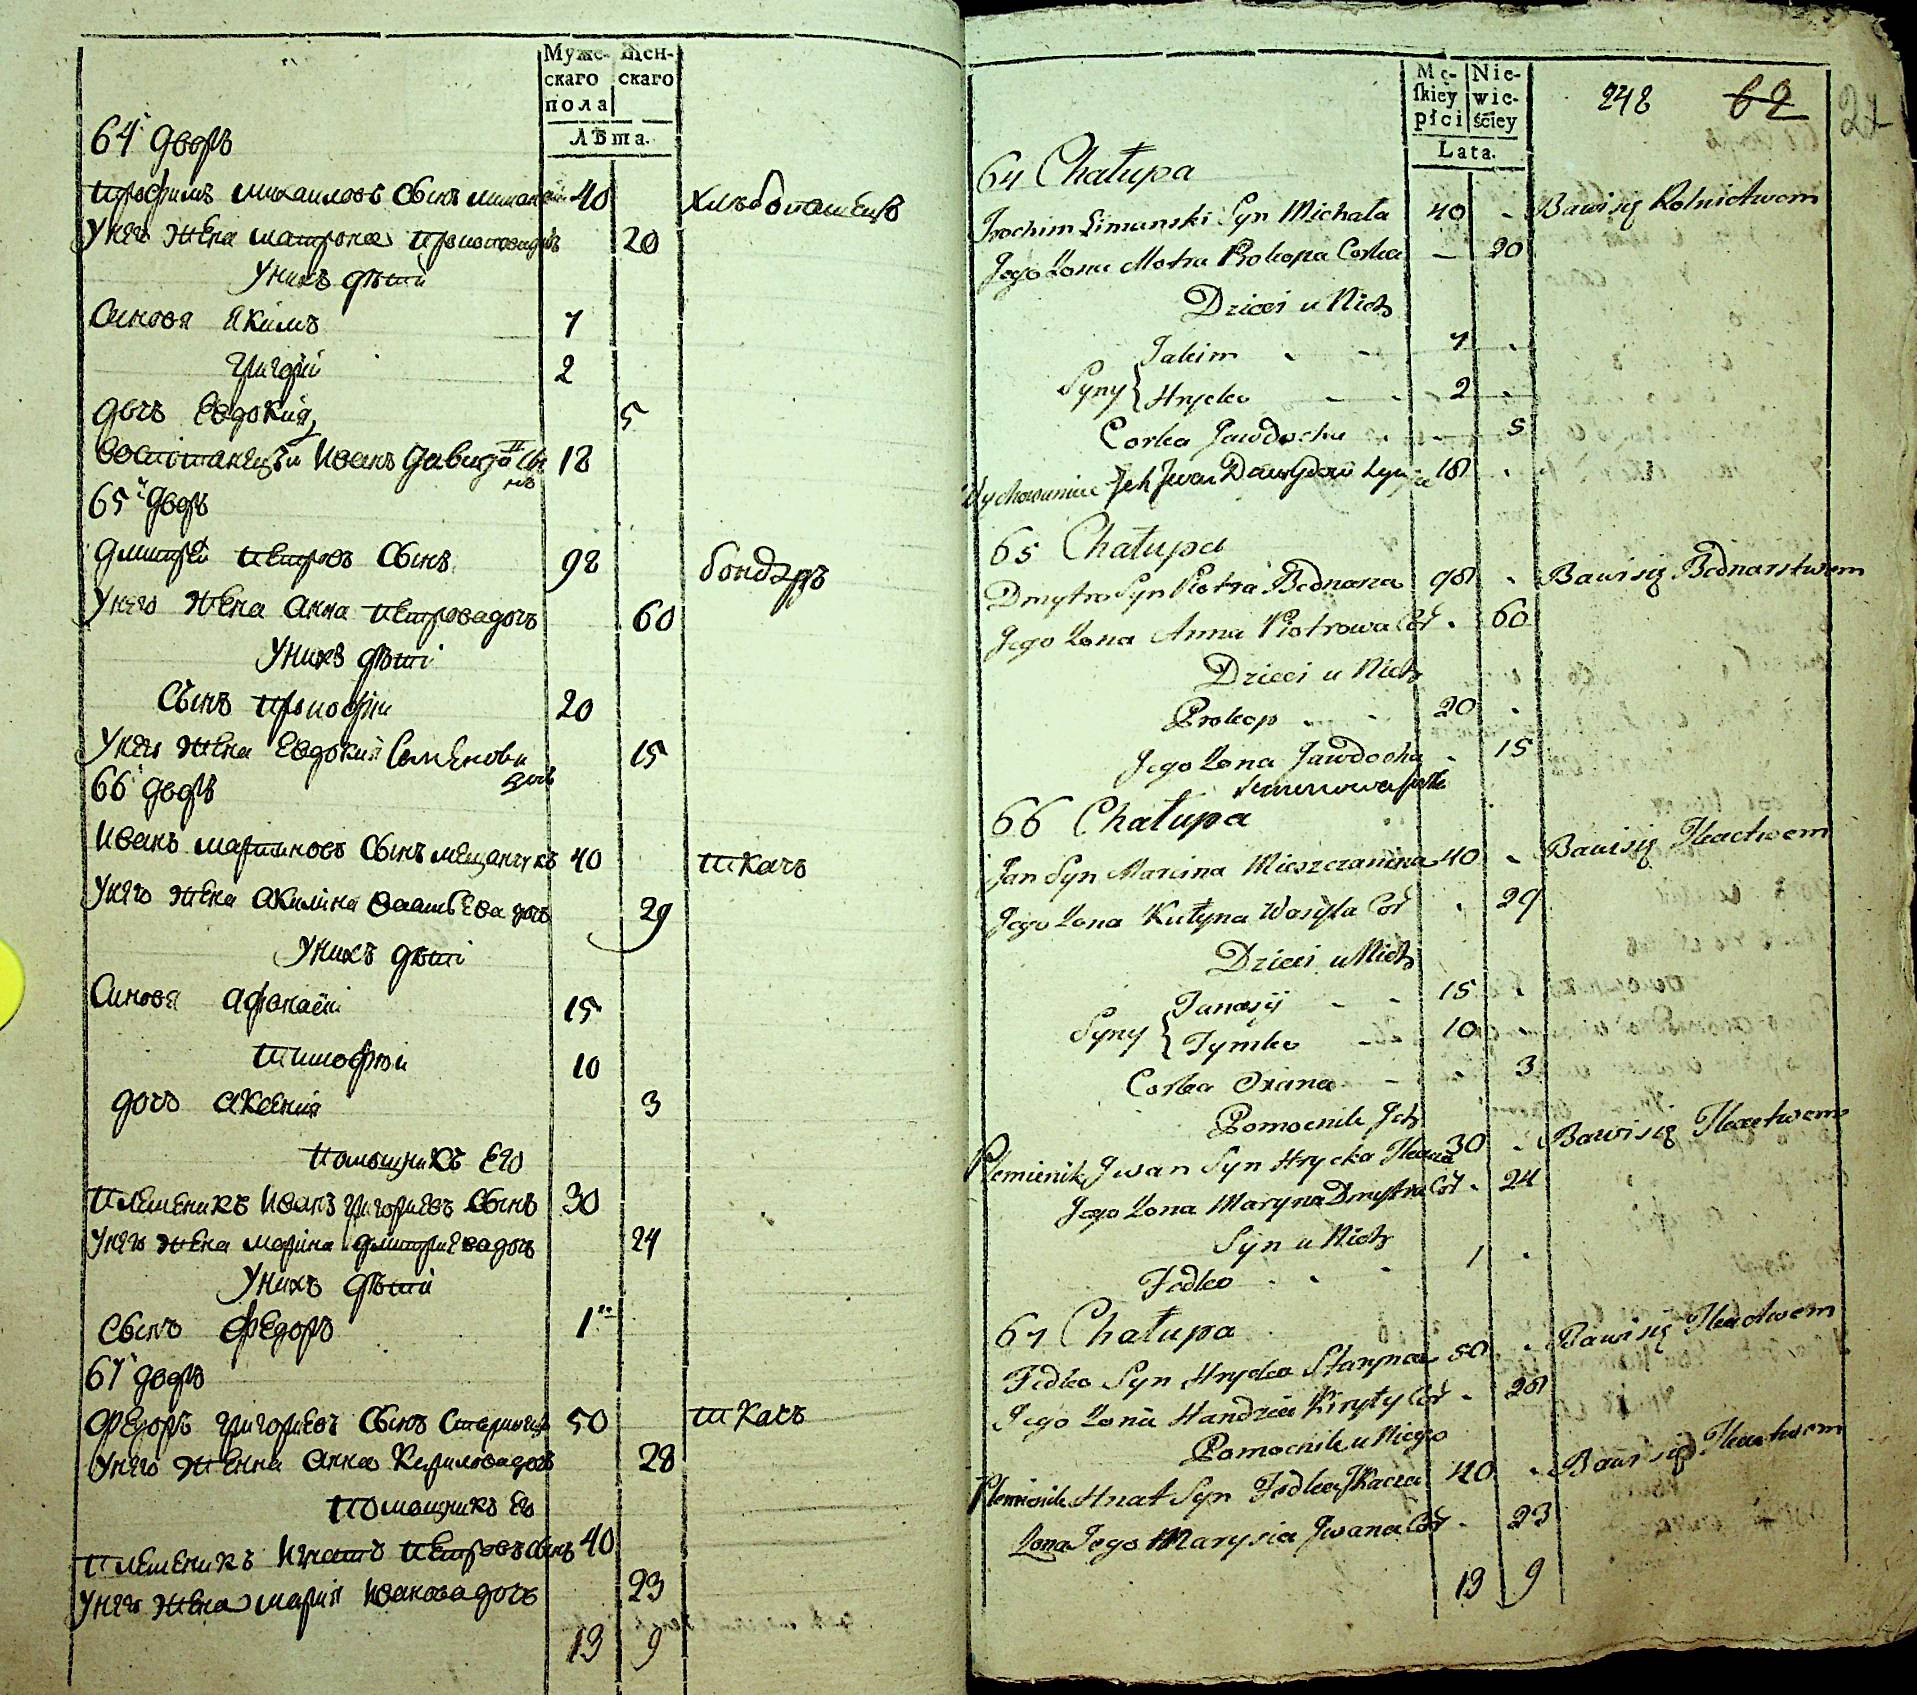 Муже-
скаго
пола
Жен-
скаго
Лѣта.
64й дворъ
Трофимъ михаиловъ сынъ 40 хлѣбопашецъ
У него жена матрона 20
У нихъ дѣти
Синовя якимъ 7
григорій 2
дочь Евдокия 5
воспитанецъ Иванъ 18
65й дворъ
дмитрей петровъ сынъ 98 бондаръ
У него жена анна петрова дочь 60
У нихъ дѣті
Сынъ прокофій 20
У него жена Евдокия Семенова
дочь 15
66й дворъ
Иванъ мартиновъ сынъ мещанчукъ 40 ткачъ
У него жена акилина васильева дочь 29
У нихъ дѣті
Синовя афанасій 15
тимофей 10
дочь аксения 3
помощникъ Его
племеникъ Иванъ григориевъ сынъ 30
У него жена марина дмитриева дочь 24
У нихъ дѣти
Сынъ федоръ 1
67й дворъ
федоръ григориевъ сынъ 50 ткачъ
У него женна анна Кирилова дочь 28
помощникъ Его
племеникъ Игнатъ петровъ сынъ 40
У него жена мария Иванова дочь 23
13 9
Mę-
skiey
płci
Nie-
wie-
ściey
Lata.
248 62
27
64 Chałupa
Trochim Limanski Syn Michała 40 - Bawi się Rolnictwem
Jego Żona Motra Prokopa Corka - 20
Dzieci u Nich
Jakim - - 7 -
Syny { Hryćko - - 2 -
Corka Jawdocha - - 5
Wychowaniec Ich Jwan Dawydow Syn 18 -
65 Chałupa
Dmytro Syn Piotra Bednarza 98 - Bawi się Bednarstwem
Jego Żona Anna Piotrowa Cor - 60
Dzieci u Nich
Prokop - - 20 -
Jego Żona Jawdocha - 15
Semenowa
66 Chałupa
Jan Syn Marcina Mieszczanina 40 - Bawi się Tkactwem
Jego Żona Kułyna Wasyla Cor - 29
Dzieci u Nich
Tanasij - - 15 -
Syny { Tymko - 10 -
Corka Oxana - - 3
Pomocnik Ich
Plemienik Jwan Syn Hrycka Tkacza 30 - Bawi się Tkactwem
Jego Żona Maryna Dmytra Cor - 24
Syn u Nich
Fedko - - - 1 -
67 Chałupa
Fedko Syn Hrycka 50 - Bawi się Tkactwem
Jego Żona Handzia Kiryły Cor - 28
Pomocnik u Niego
Plemienik Hnat Syn Fedka Tkacza 40 - Bawi się Tkactwem
Żona Jego Marysia Jwana Cor - 23
13 9